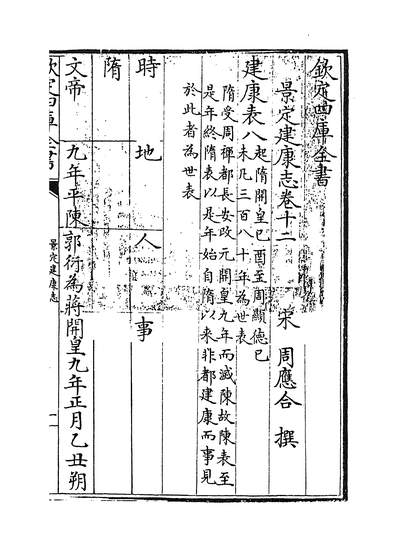 欽定四庫全書
景定建康志卷十二
宋 周應合 撰
建康表八 起隋開皇巳酉至周顯德巳
未凡三百八十年為世表
隋受周禪都長安改元開皇九年而滅陳故陳表至
是年終隋表以是年始自隋以來非都建康而事見
於此者為世表
時 地 人 事
隋
文帝 九年平陳 郭衍為蔣 開皇九年正月乙丑朔
欽定四庫全書
景定建康志